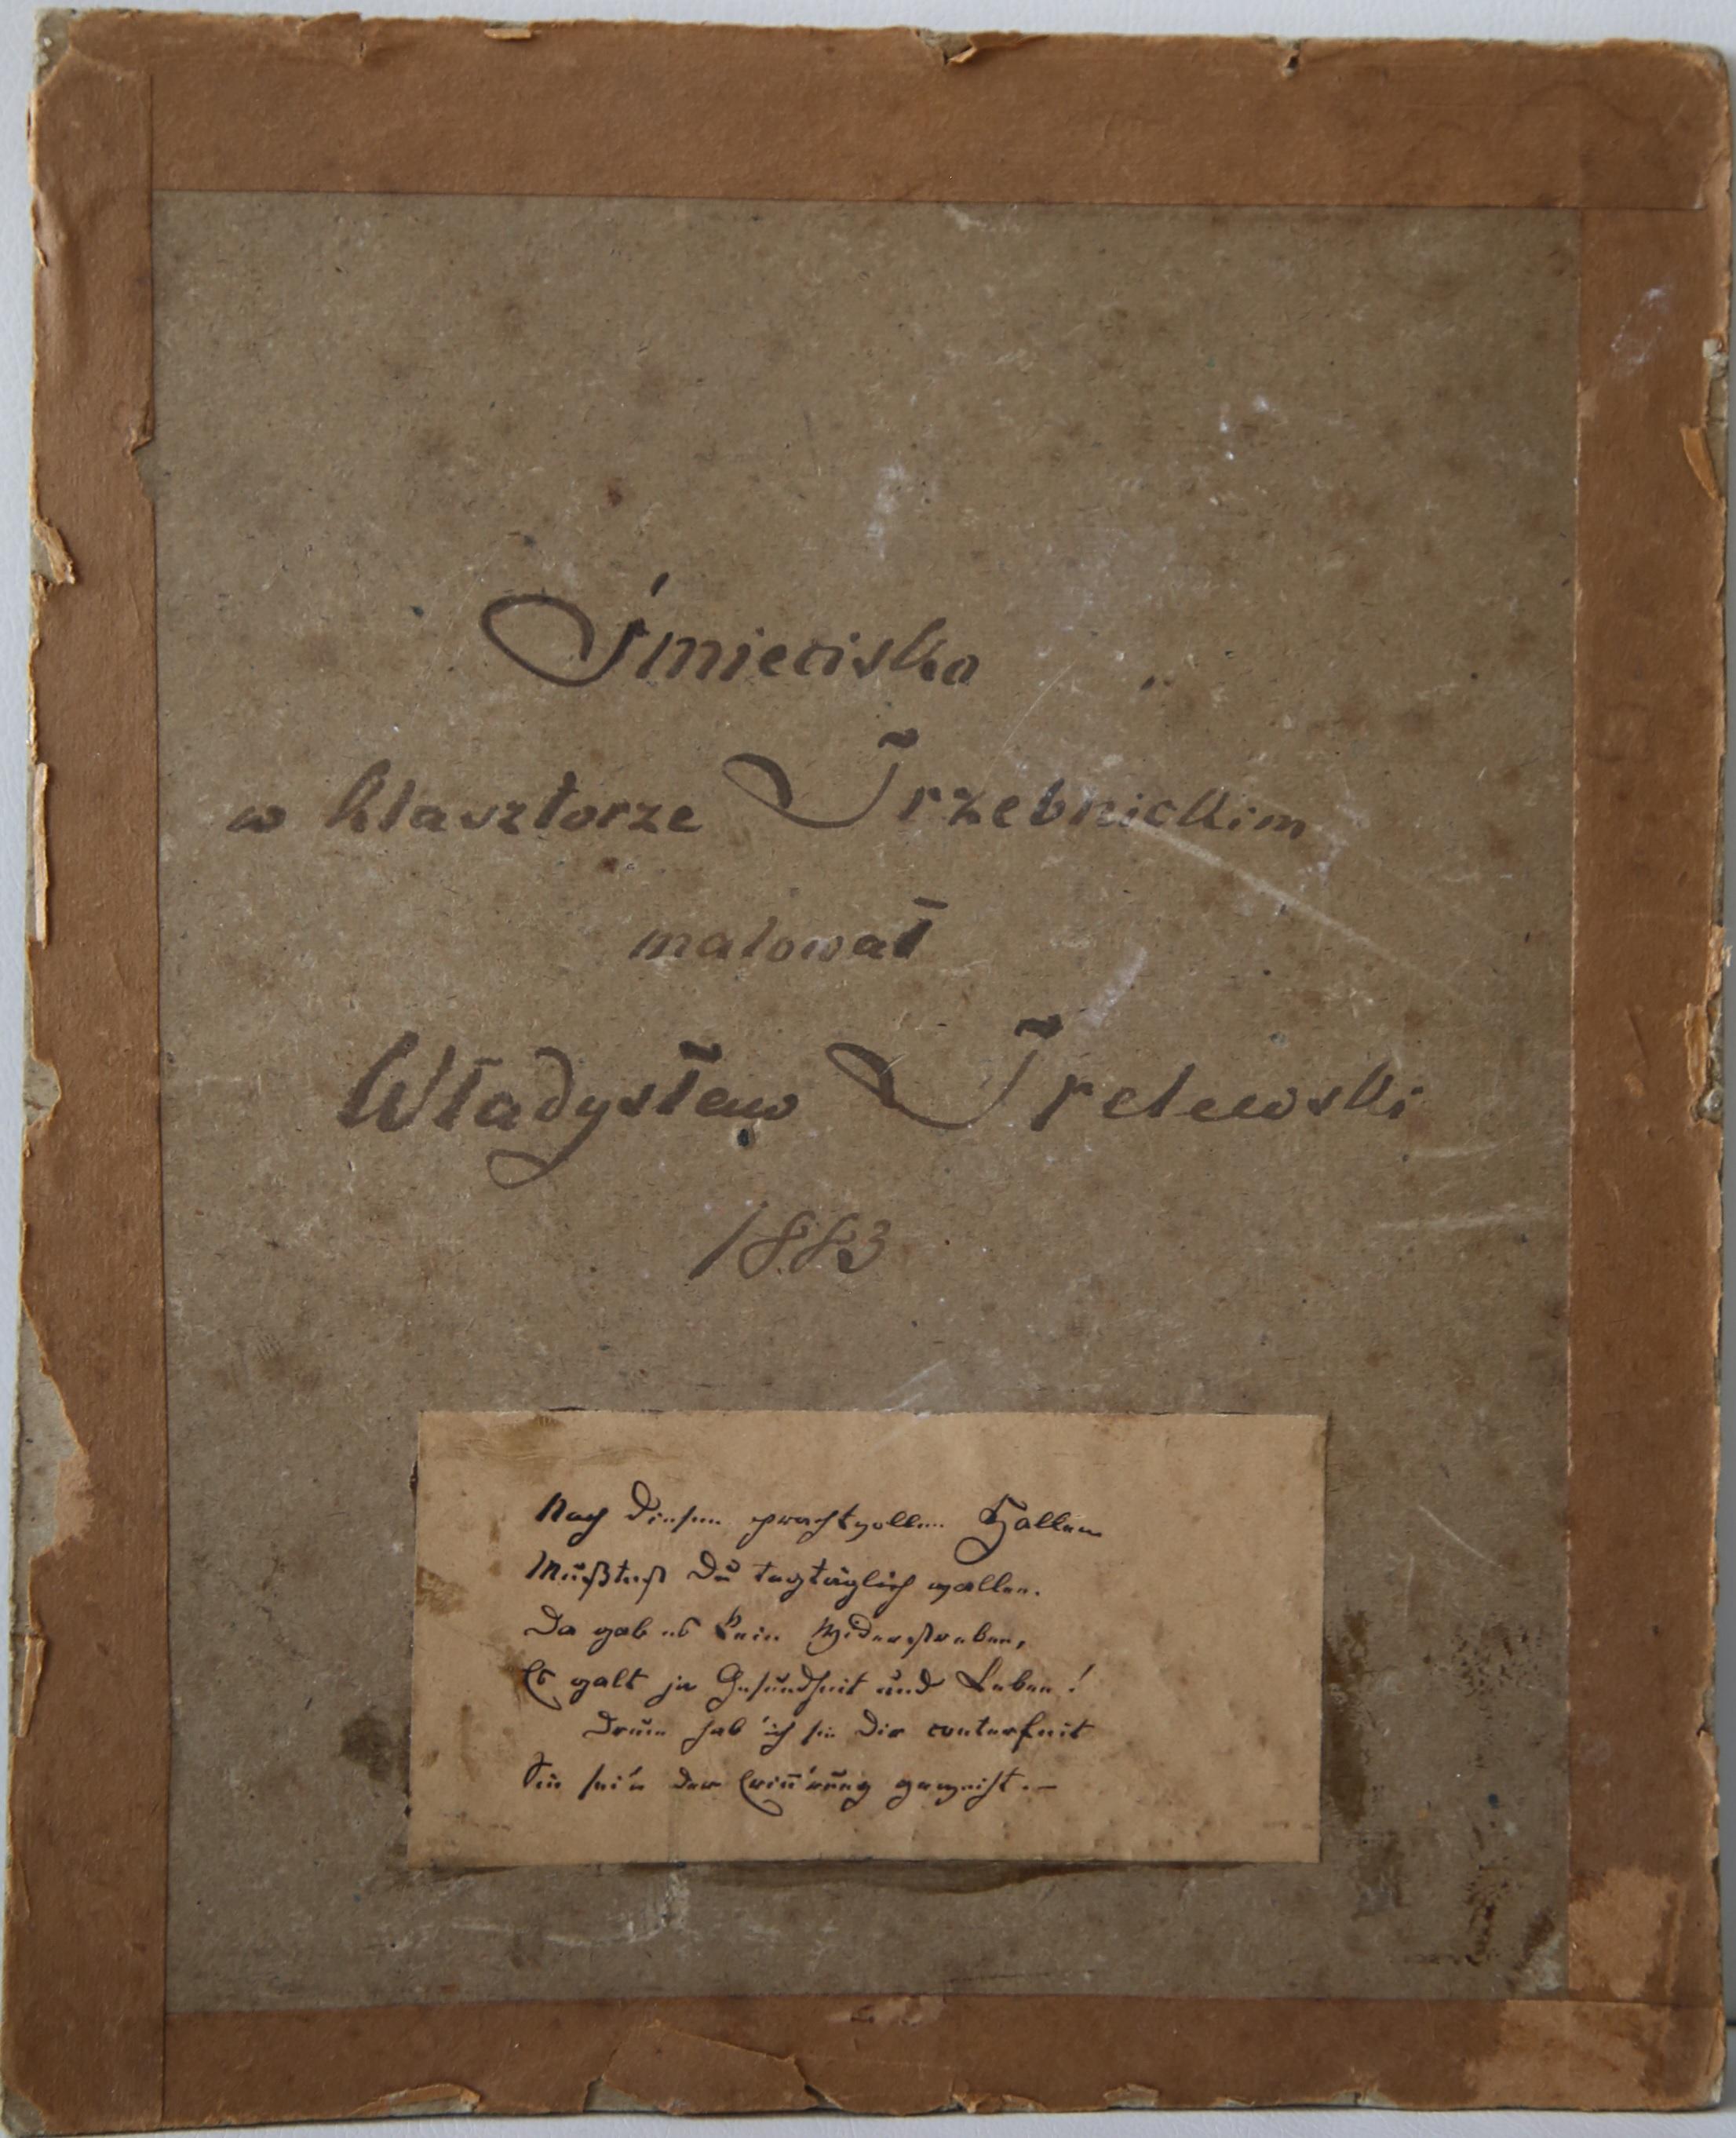 Śmiecisko
w klasztorze Trzebnickim
malował
Władysław Trelewski
1883
Nach diesen prachtvollen Hallen
Mußtest Du tagtäglich wallen.
Da gab es kein Widerstreben,
Es galt ja Gesundheit und Leben!
Drum hab' ich sie Dir conterfeit
Sie sei'n der Erinn'rung geweiht.—